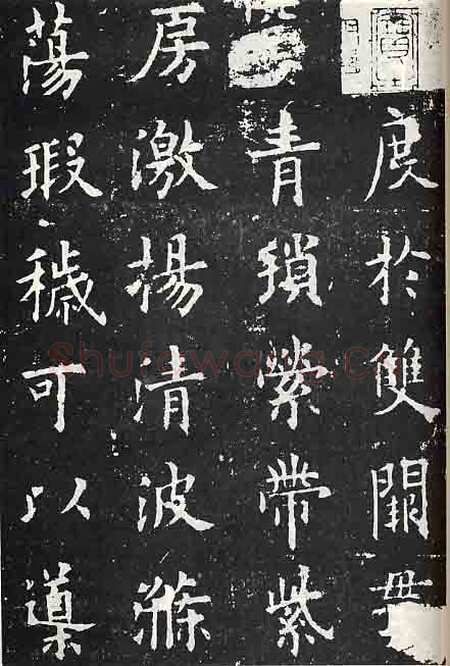 度於雙闕
青瑣縈帶紫
房激揚清波滌
蕩瑕穢可以導
Shufawang.Cn